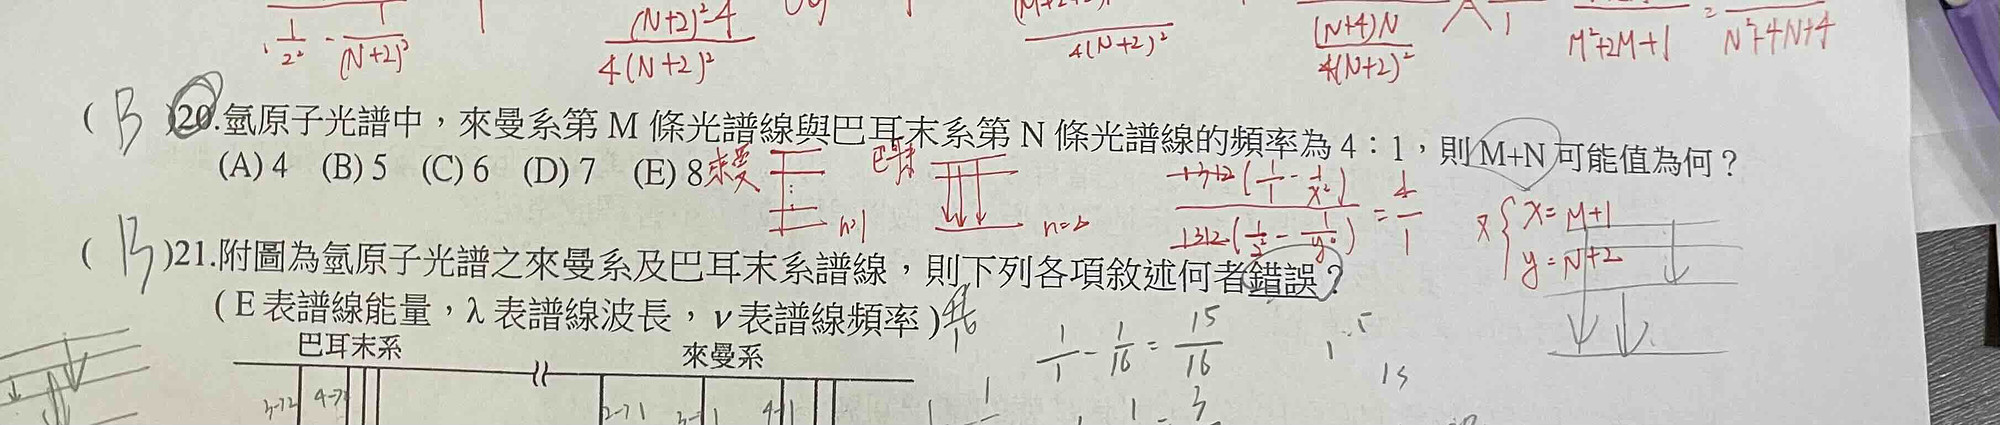 1/2² - 1/(N+2)²
(N+2)²-4 / 4(N+2)²
4(N+2)²
(N+4)N / 4(N+2)²
1
M²+2M+1
=
N²+4N+4
( B )20.氫原子光譜中，來曼系第 M 條光譜線與巴耳末系第 N 條光譜線的頻率為 4：1，則 M+N 可能值為何？
(A) 4 (B) 5 (C) 6 (D) 7 (E) 8
來曼
n=1
巴耳末
n=2
1312(1/1 - 1/x²) / 1312(1/2² - 1/y²) = 4/1
x=M+1
y=N+2
( B )21.附圖為氫原子光譜之來曼系及巴耳末系譜線，則下列各項敘述何者錯誤？
( E 表譜線能量，λ 表譜線波長，ν 表譜線頻率 )
1/1 - 1/16 = 15/16
15
巴耳末系 來曼系
3→2 4→2 2→1 3→1 4→1